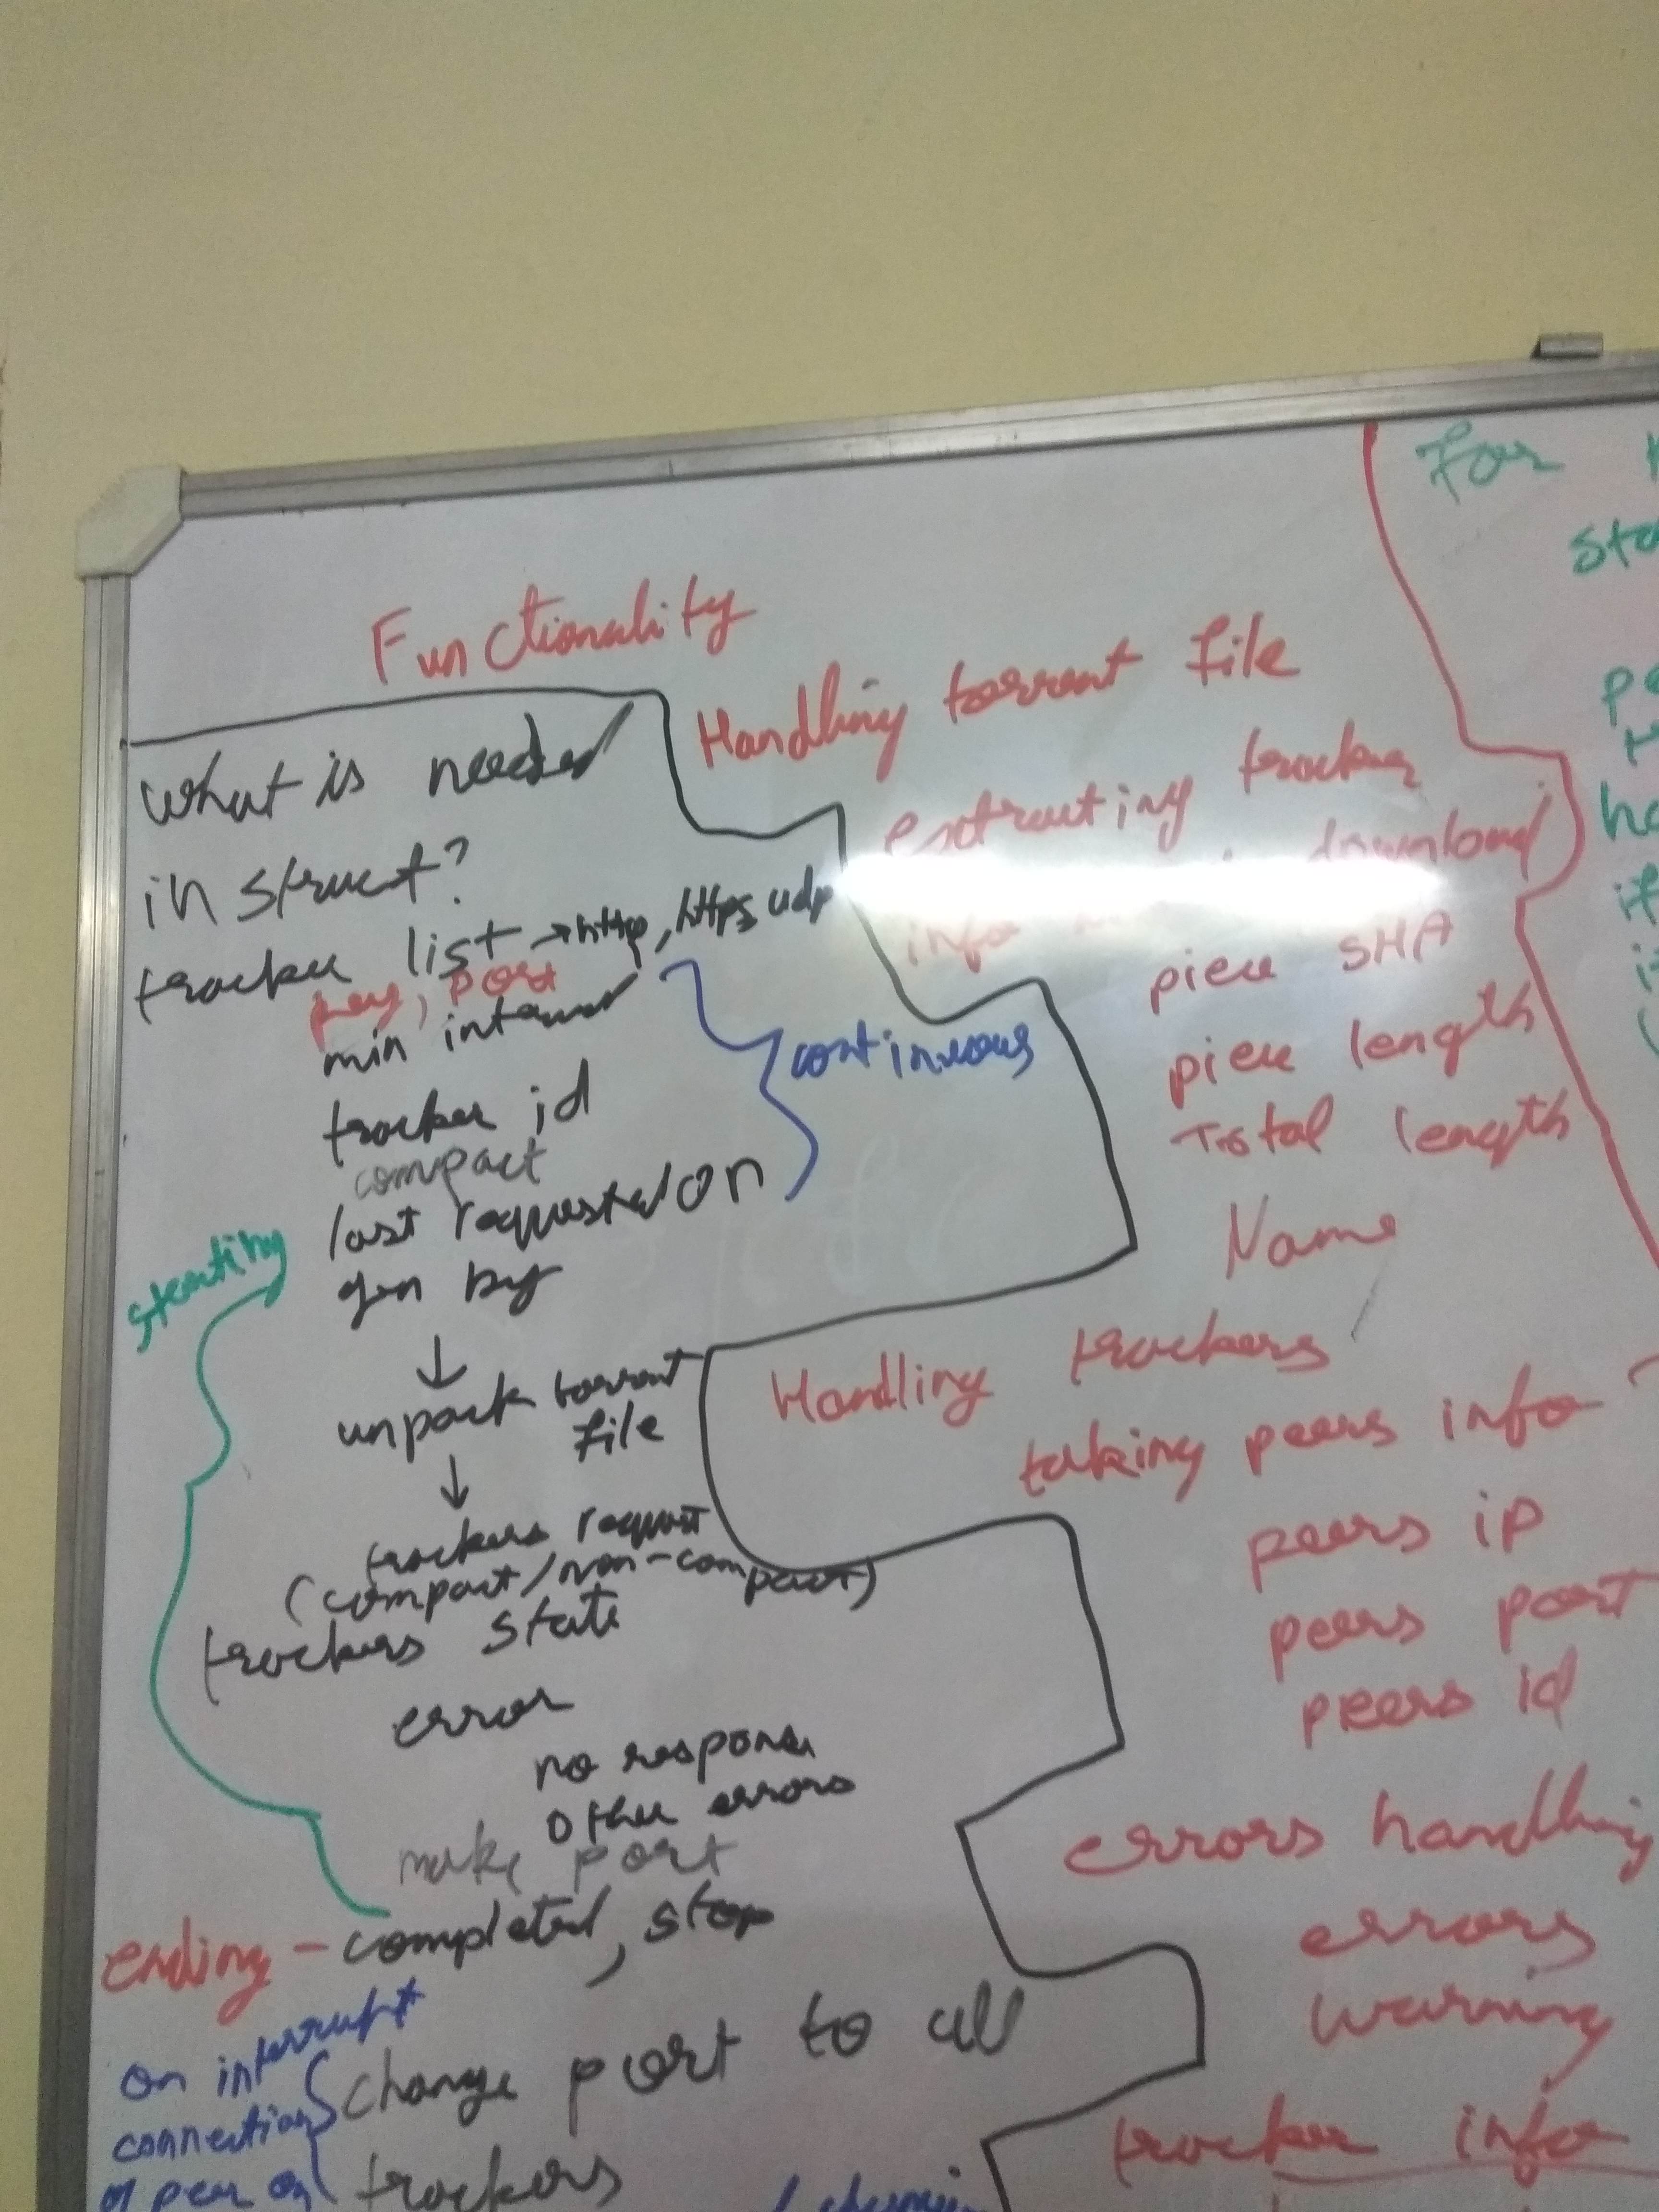 Functionality
what is needed
in struct?
tracker list → http, https udp
port
min interval
tracker id
compact
last requested on
continuous
starting
↓
unpack torrent
file
↓
trackers request
(compact/non-compact)
trackers state
error
no response
other errors
make port
ending - completed, stop
on interrupt
connection
of peer on
change port to all
trackers
Handling torrent file
extracting tracker
info download
piece SHA
piece length
Total length
Name
Handling trackers
taking peers info
peers ip
peers port
peers id
errors handling
errors
warning
tracker info
For